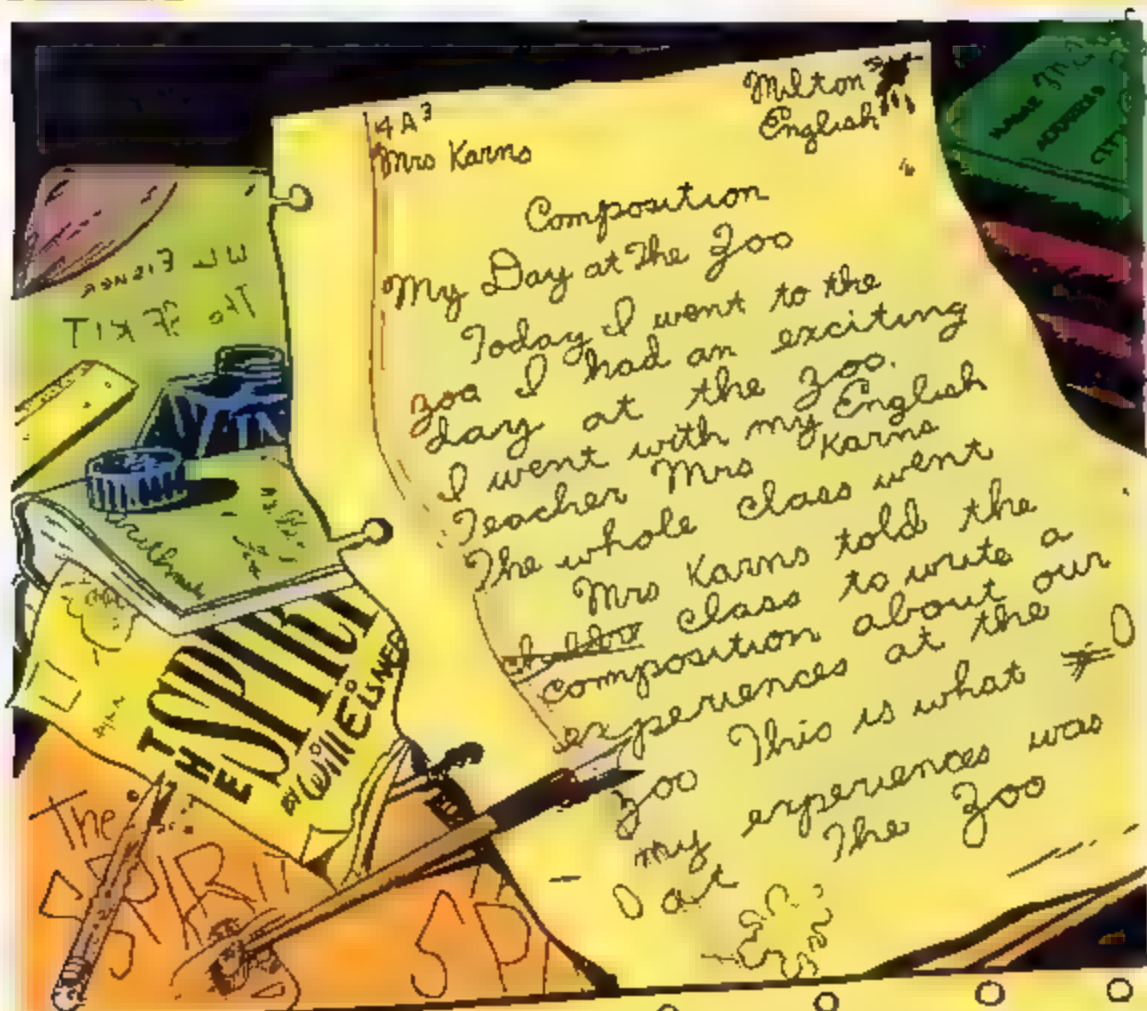 4A3
Mrs Karns
Milton
English
Composition
My Day at The Zoo
Today I went to the
zoo I had an exciting
day at the zoo.
I went with my English
Teacher Mrs Karns
The whole class went
Mrs Karns told the
class to write a
composition about our
experiences at the
zoo This is what
my experiences was
at The Zoo
NAME
ADDRESS
CITY
IN
THE
SPIRI
BY Will EisNER
The
SPIRIT
SPI